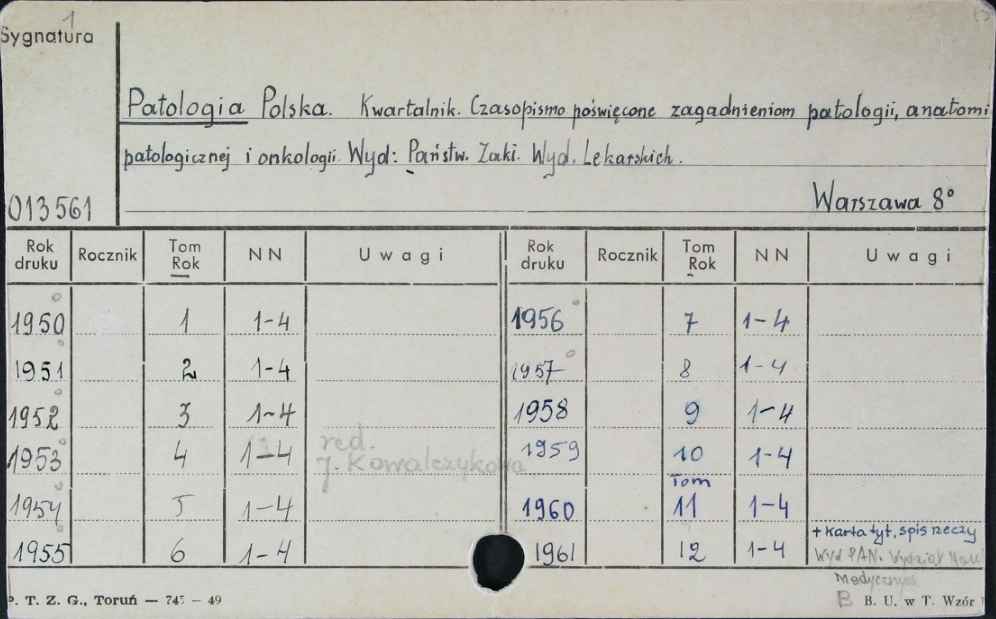 1
Sygnatura
Patologia Polska. Kwartalnik. Czasopismo poświęcone zagadnieniom patologii, anatomi
patologicznej i onkologii. Wyd: Państw. Zakł. Wyd. Lekarskich.
013561
Warszawa 8°
Rok druku Rocznik Tom Rok NN Uwagi Rok druku Rocznik Tom Rok NN Uwagi
1950 1 1-4 1956 7 1-4
1951 2 1-4 1957 8 1-4
1952 3 1-4 1958 9 1-4
1953 4 1-4 red. J. Kowalczykowa 1959 10 1-4
1954 5 1-4 1960 Tom 11 1-4
1955 6 1-4 1961 12 1-4 + karta tyt, spis rzeczy
Wyd PAN. Wydział Nauk
Medycznych
P. T. Z. G., Toruń — 745 - 49 B B. U. w T. Wzór